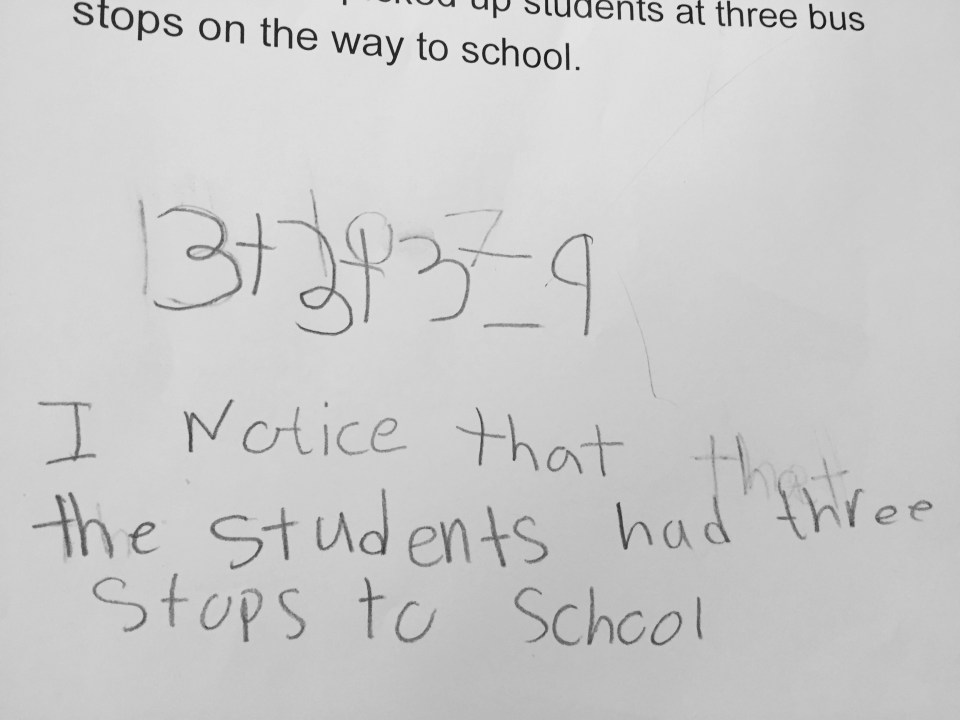 up students at three bus
stops on the way to school.
3+3+3=9
I Notice that that
the students had three
Stops to School